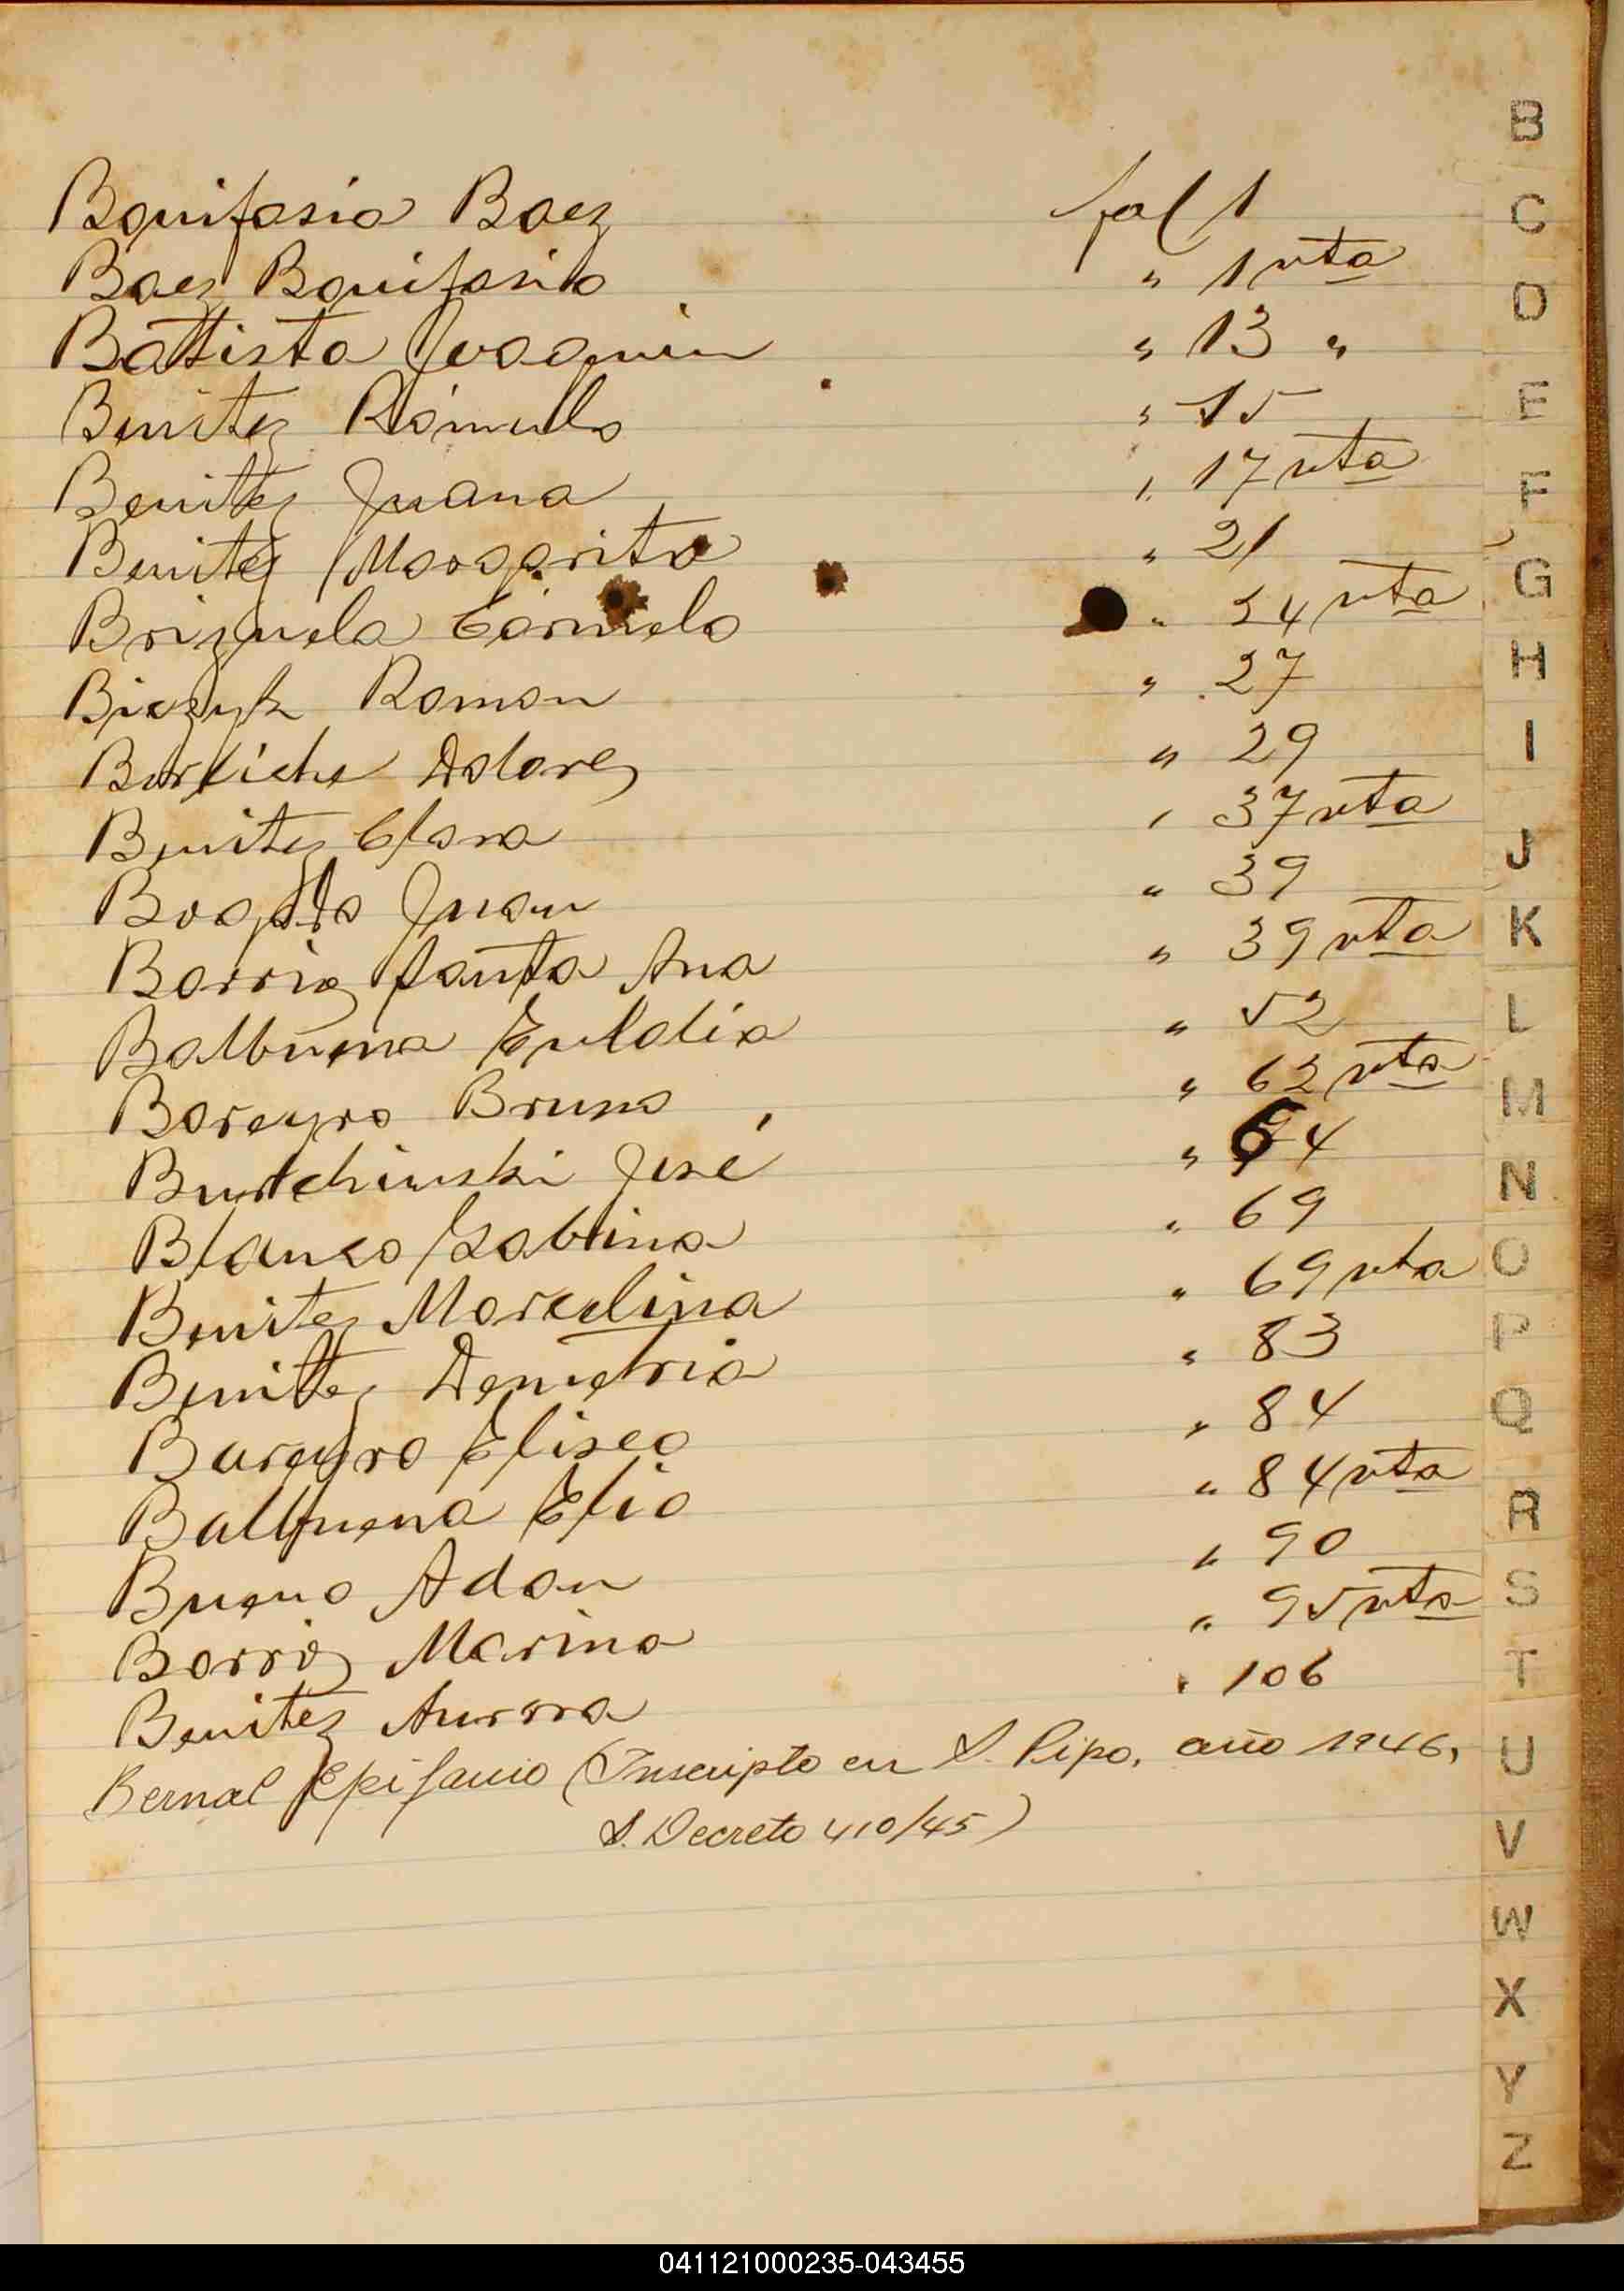 Bonifasio Baez fol 1
Baez Bonifasio " 1 vta
Battista Joaquin " 13 "
Benitez Rómulo " 15
Benitez Juana " 17 vta
Benitez Margarita " 21
Brizuela Carmelo " 24 vta
Roman " 27
Dolores " 29
Benitez Clara " 37 vta
Juan " 39
Barrio Santa Ana " 39 vta
Balbuena Eulalia " 52
Bareyro Bruno " 62 vta
José " 64
Blanco Sabina " 69
Benitez Marcelina " 69 vta
Benitez Demetria " 83
Bareyro Eliseo " 84
Balbuena Elio " 84 vta
Bueno Adan " 90
Barrio Marina " 95 vta
Benitez Aurora " 106
Bernal Epifanio (Inscripto en S. Pipo, año 1946,
S. Decreto 410/45)
B
C
D
E
F
G
H
I
J
K
L
M
N
O
P
Q
R
S
T
U
V
W
X
Y
Z
041121000235-043455